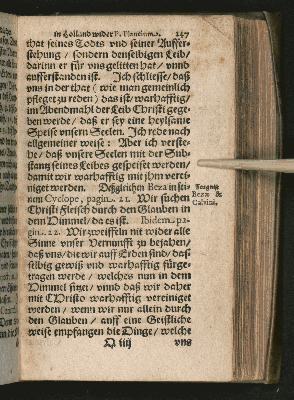 in Holland wider P. Plancium. 247
that seines Todts vnd seiner Auffer-
stehung / sondern denselbigen Leib /
darinn er für vns gelitten hat / vnnd
aufferstanden ist. Ich schliesse / daß
vns in der that (wie man gemeinlich
pfleget zu reden) das ist / warhafftig /
im Abendmahl der Leib Christi gege-
ben werde / daß er sey eine heylsame
Speise vnsern Seelen. Ich rede nach
allgemeiner weise: Aber ich verste-
he / daß vnsere Seelen mit der Sub-
stantz seines Leibes gespeiset werden /
damit wir warhafftig mit jhm verei-
niget werden. Deßgleichen Beza in sei-
nam Cyclope, pagin. 21. Wir suchen
Christi Fleisch durch den Glauben in
dem Himmel / da es ist. Ibidem pa-
gin. 22. Wir zweiffeln nit wider alle
Sinne vnser Vernunfft zu bejahen /
daß vns / die wir auff Erden sind / das-
selbig gewiß vnd warhafftig fürge-
tragen werde / welches nun in dem
Himmel sitzet / vnnd daß wir daher
mit Christo warhafftig vereiniget
werden / wenn wir nur allein durch
den Glauben / auff eine Geistliche
weise empfangen die Dinge / welche
Q iiij vns
Zeugnis
Bezæ &
Calvini.